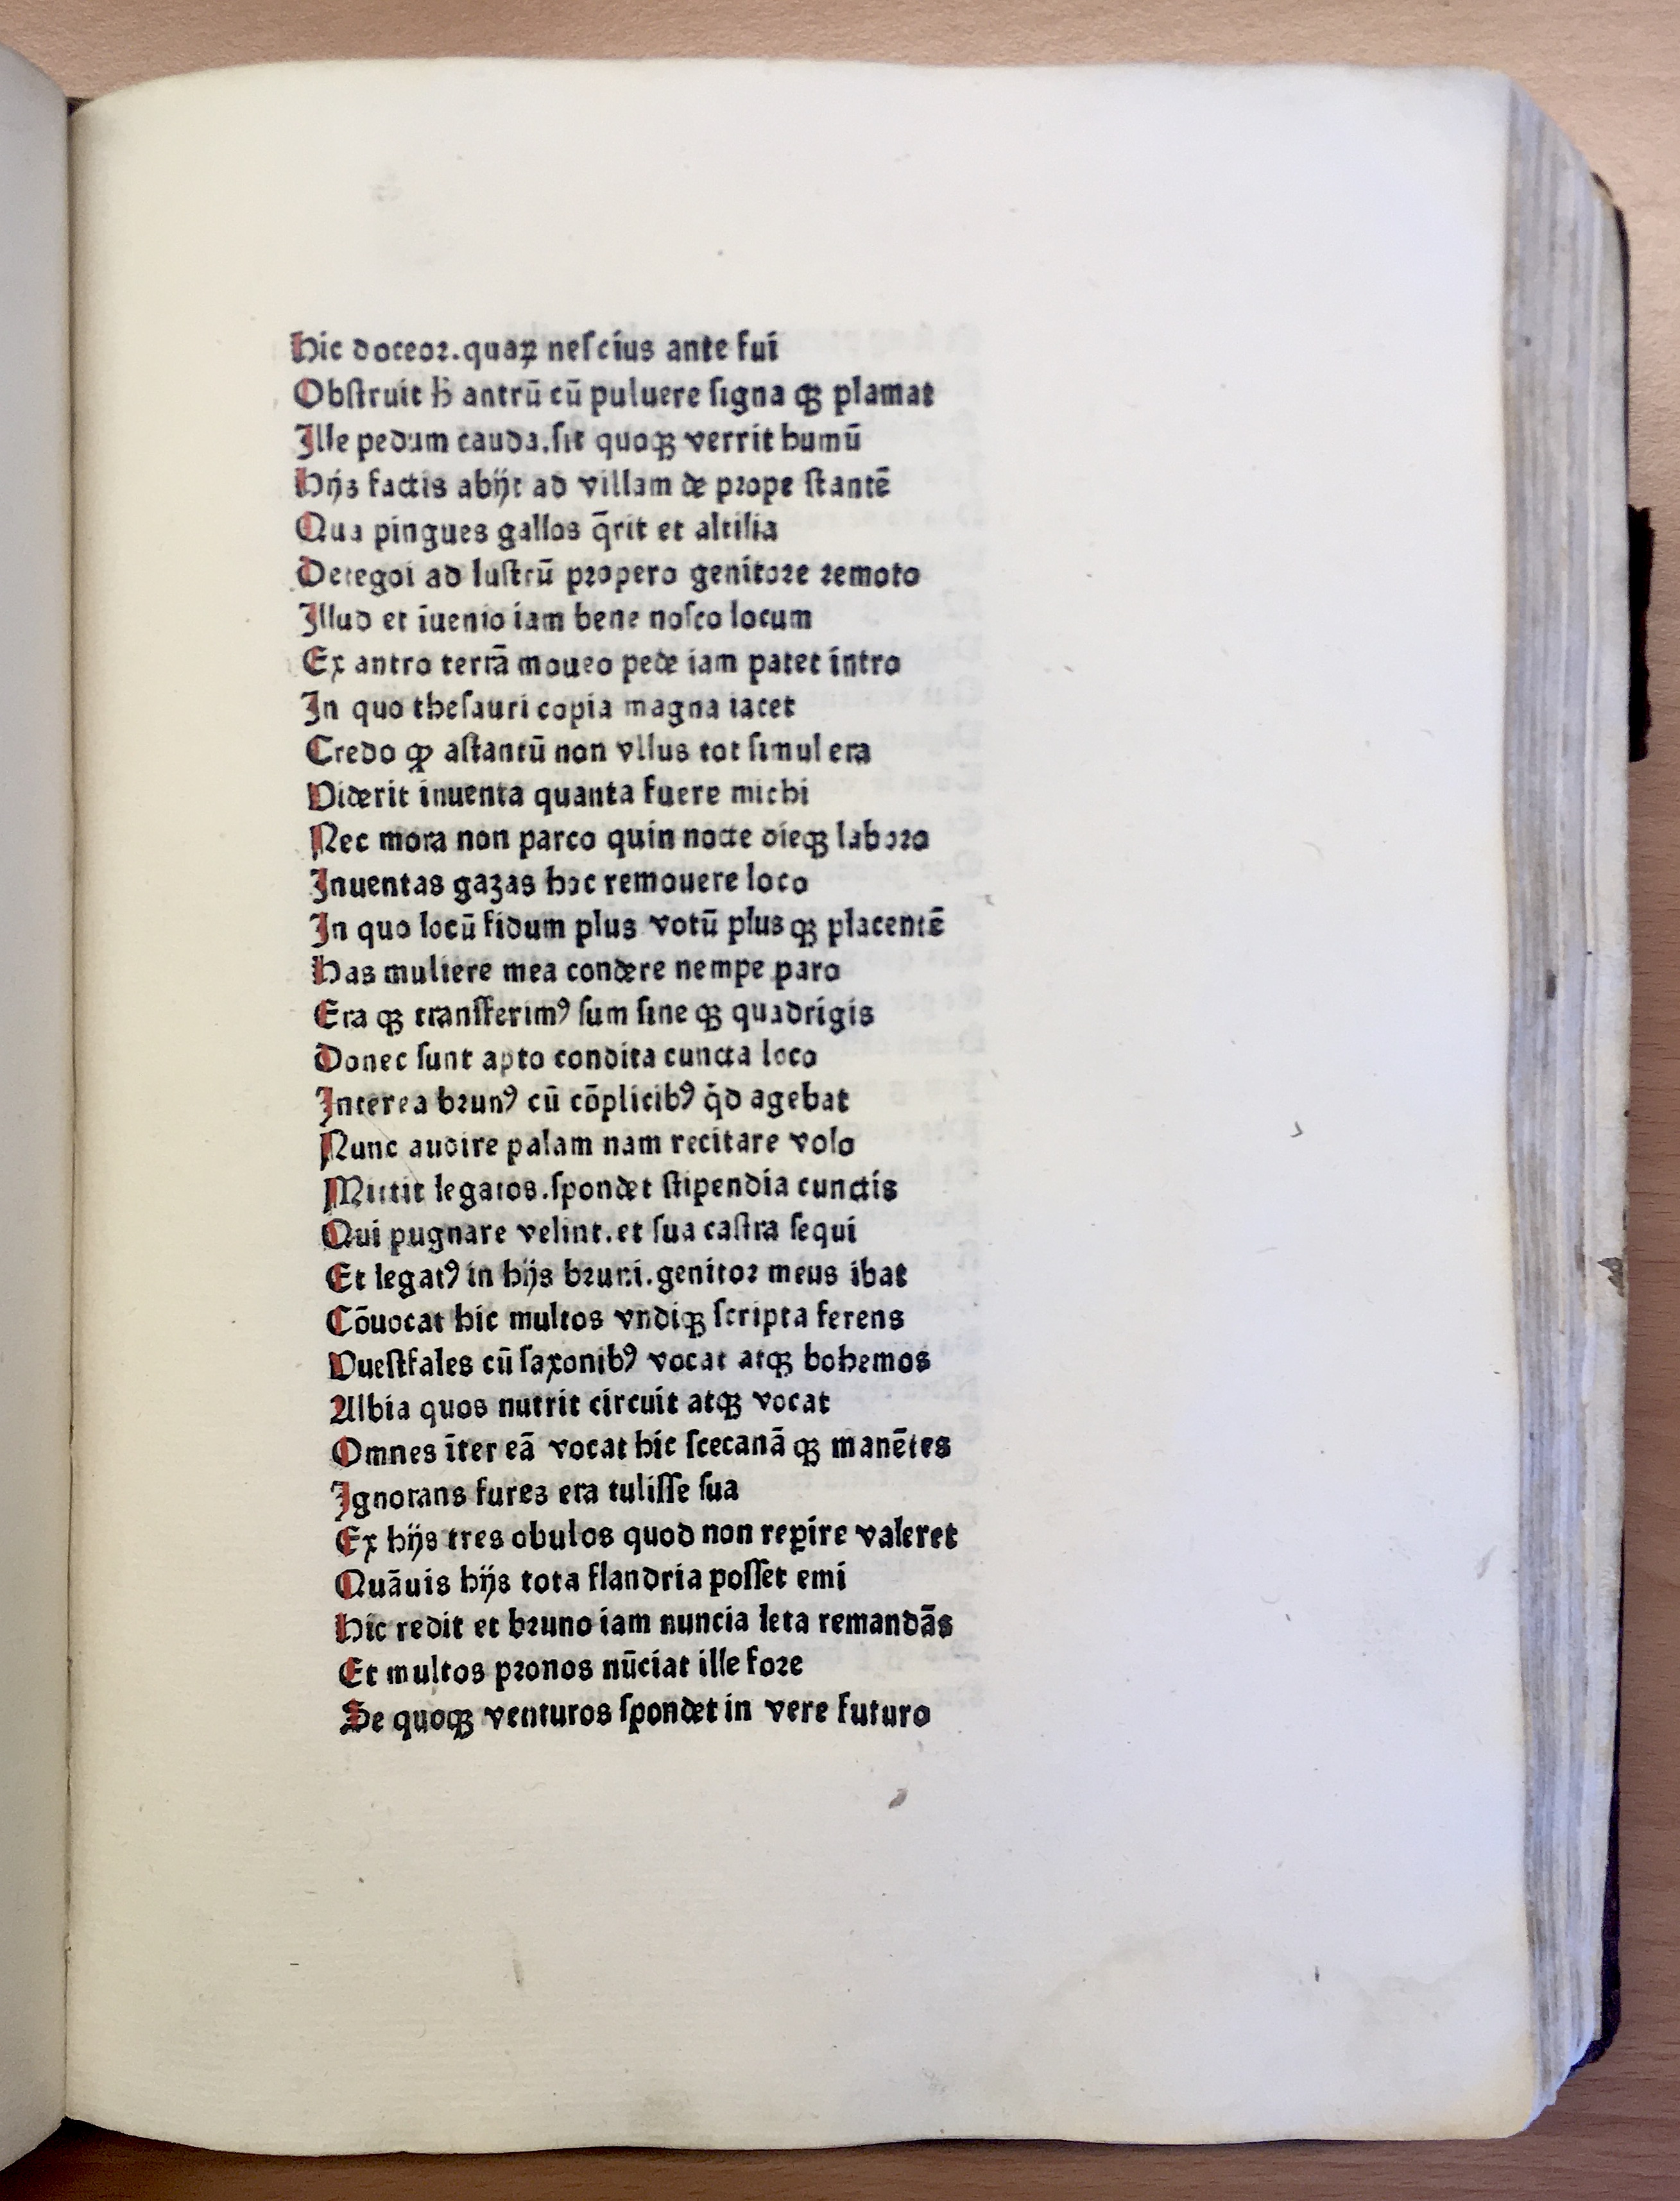 Hic doceoꝛ.quaꝝ neſcius ante fui
Obſtruit h̄ antrū cū puluere ſigna qꝫ plamat
Ille pedum cauda.ſit quoqꝫ verrit humū
Hijs factis abijt ad villam de pꝛope ſtantē
Qua pingues gallos q̄rit et altilia
Detegoi ad luſtrū pꝛopero genitoꝛe ꝛemoto
Illud et īuenio iam bene noſco locum
Ex antro terrā moueo pede iam patet intro
In quo theſauri copia magna iacet
Credo ꝙ aſtantū non vllus tot ſimul era
Viderit inuenta quanta fuere michi
Nec mora non parco quin nocte dieqꝫ laboꝛo
Inuentas gazas hoc remouere loco
In quo locū fidum plus votū plus qꝫ placentē
Has muliere mea condere nempe paro
Era qꝫ tranſferimꝰ ſum ſine qꝫ quadrigis
Donec ſunt apto condita cuncta loco
Interea bꝛunꝰ cū cōplicibꝰ qͥd agebat
Nunc audire palam nam recitare volo
Mittit legatos.ſpondet ſtipendia cunctis
Qui pugnare velint.et ſua caſtra ſequi
Et legatꝰ in hijs bꝛuni.genitoꝛ meus ibat
Cōuocat hic multos vndiqꝫ ſcripta ferens
Vueſtfales cū ſaxonibꝰ vocat atqꝫ bohemos
Albia quos nutrit circuit atqꝫ vocat
Omnes īter eā vocat hic ſcecanā qꝫ manētes
Ignorans fures era tuliſſe ſua
Ex hijs tres obulos quod non reꝑire valeret
Quāuis hijs tota flandria poſſet emi
Hic redit et bꝛuno iam nuncia leta remandās
Et multos pꝛonos nūciat ille foꝛe
Se quoqꝫ venturos ſpondet in vere futuro